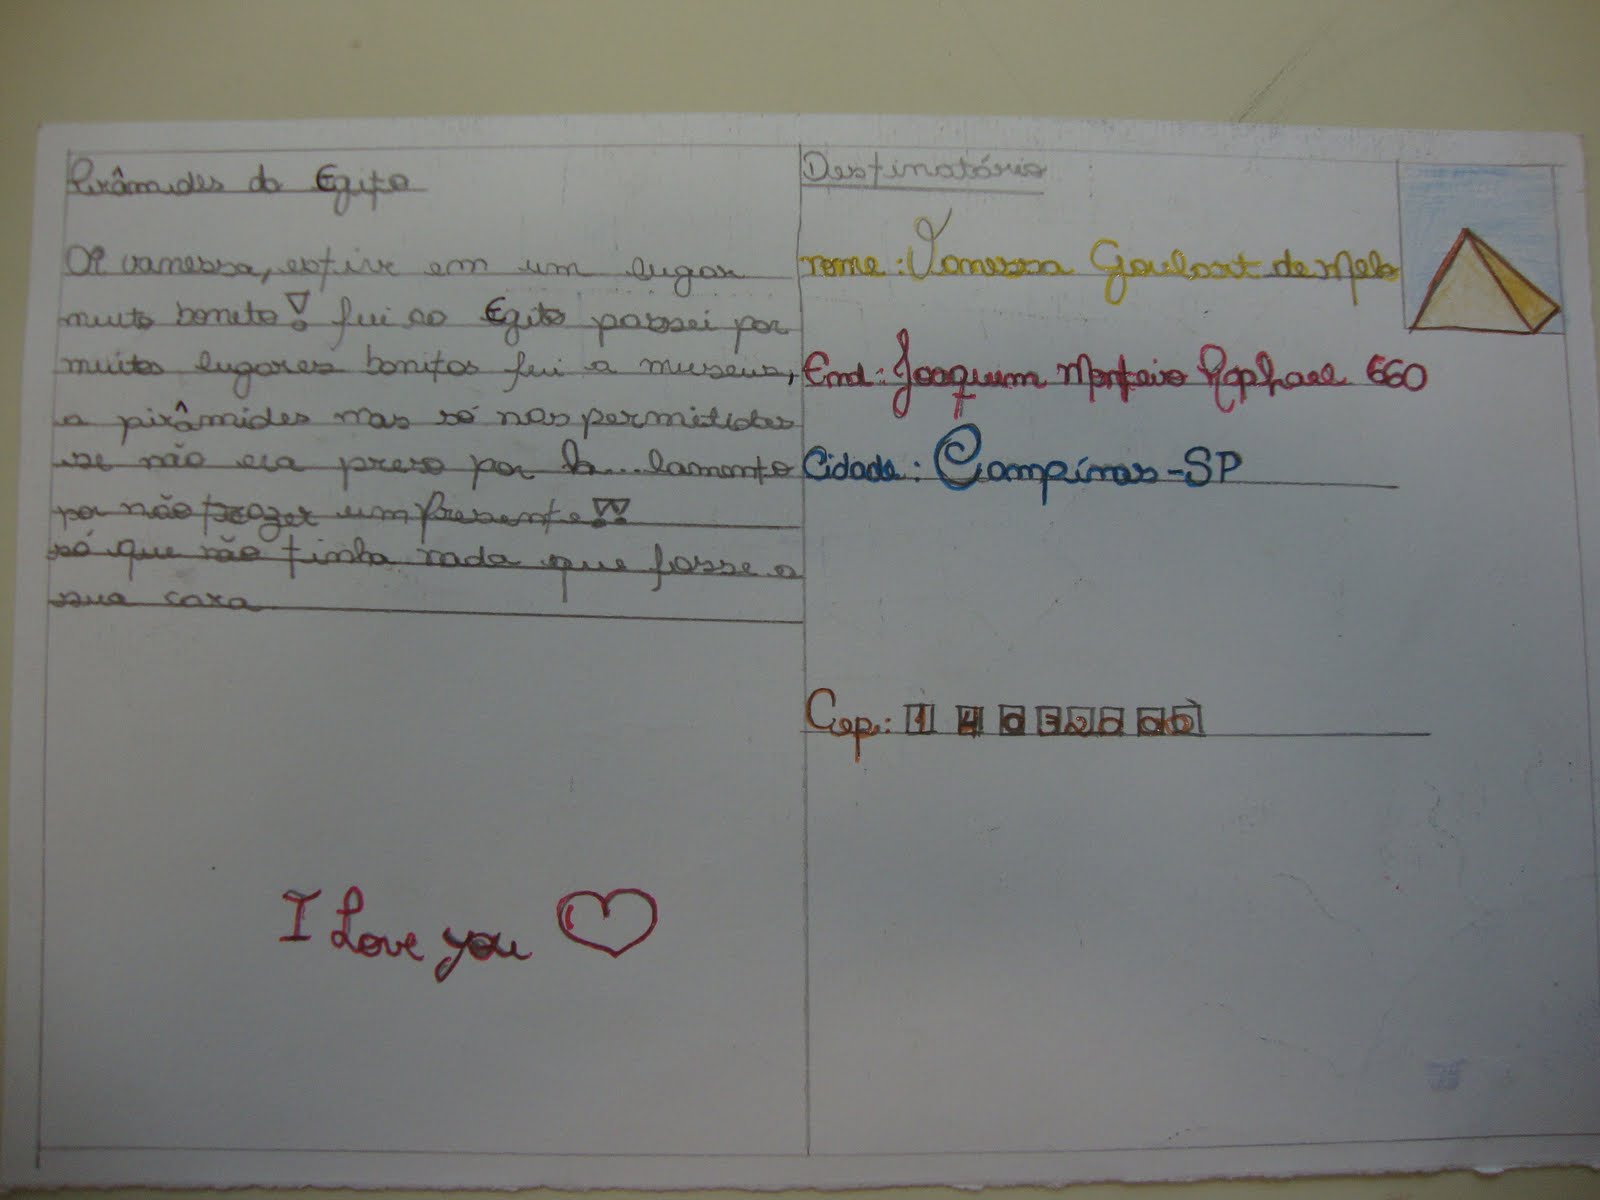 Pirâmides do Egito
Oi vanessa, estive em um lugar
muito bonito! fui ao Egito passei por
muitos lugares bonitos fui a museus,
a pirâmides mas só nas permitidas
se não era preso por lá... lamento
por não trazer um presente!!
só que não tinha nada que fosse a
sua cara
I Love you
Destinatário
nome: Vanessa Goulart de Melo
End: Joaquim Monteiro Raphael 660
Cidade: Campinas-SP
Cep: